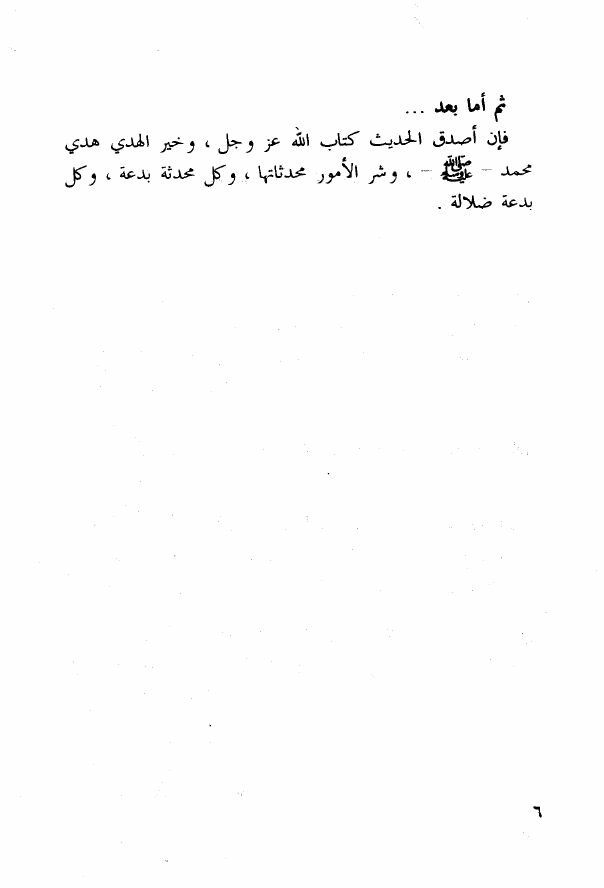 ثم أما بعد ...
فإن أصدق الحديث كتاب الله عز وجل ، وخير الهدي هدي
محمد - ﷺ - ، وشر الأمور محدثاتها ، وكل محدثة بدعة ، وكل
بدعة ضلالة .
٦